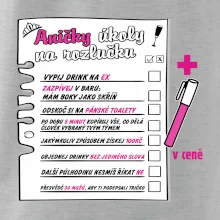 Aničky úkoly
na rozlučku
VYPIJ DRINK NA EX
ZAZPÍVEJ V BARU:
MÁM BOKY JAKO SKŘÍŇ
ODSKOČ SI NA PÁNSKÉ TOALETY
PO DOBU 5 MINUT KOPÍRUJ VŠE, CO DĚLÁ
ČLOVĚK VYBRANÝ TVÝM TÝMEM
JAKÝMKOLIV ZPŮSOBEM ZÍSKEJ 100KČ
OBJEDNEJ DRINKY BEZ JEDINÉHO SLOVA
DALŠÍ PŮLHODINU NESMÍŠ ŘÍKAT NE
PŘESVĚDČ 30 MUŽŮ, ABY TI PODEPSALI TRIČKO
+
v ceně